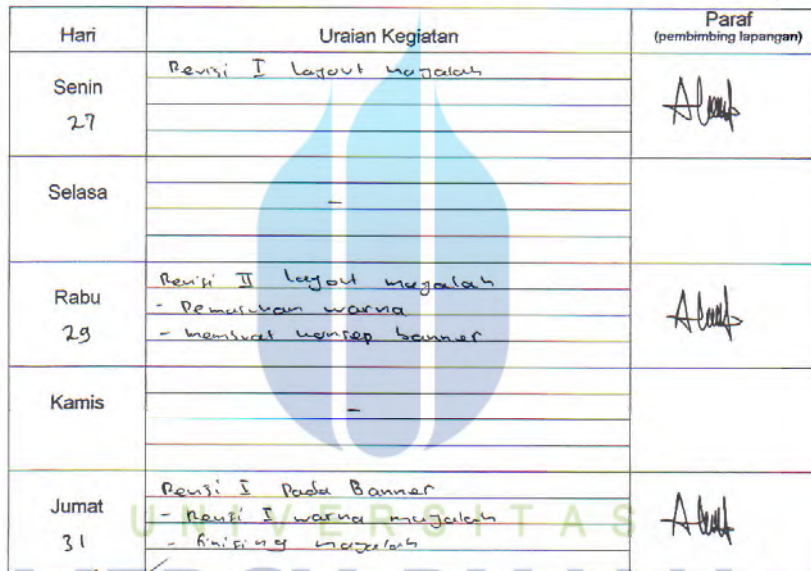 Hari Uraian Kegiatan Paraf
(pembimbing lapangan)
Senin
27
Revisi I layout majalah
Selasa
-
Rabu
29
Revisi II layout majalah
- Pemasukan warna
- membuat konsep banner
Kamis
-
Jumat
31
Revisi I Pada Banner
- Revisi I warna majalah
- finising majalah
UNIVERSITAS